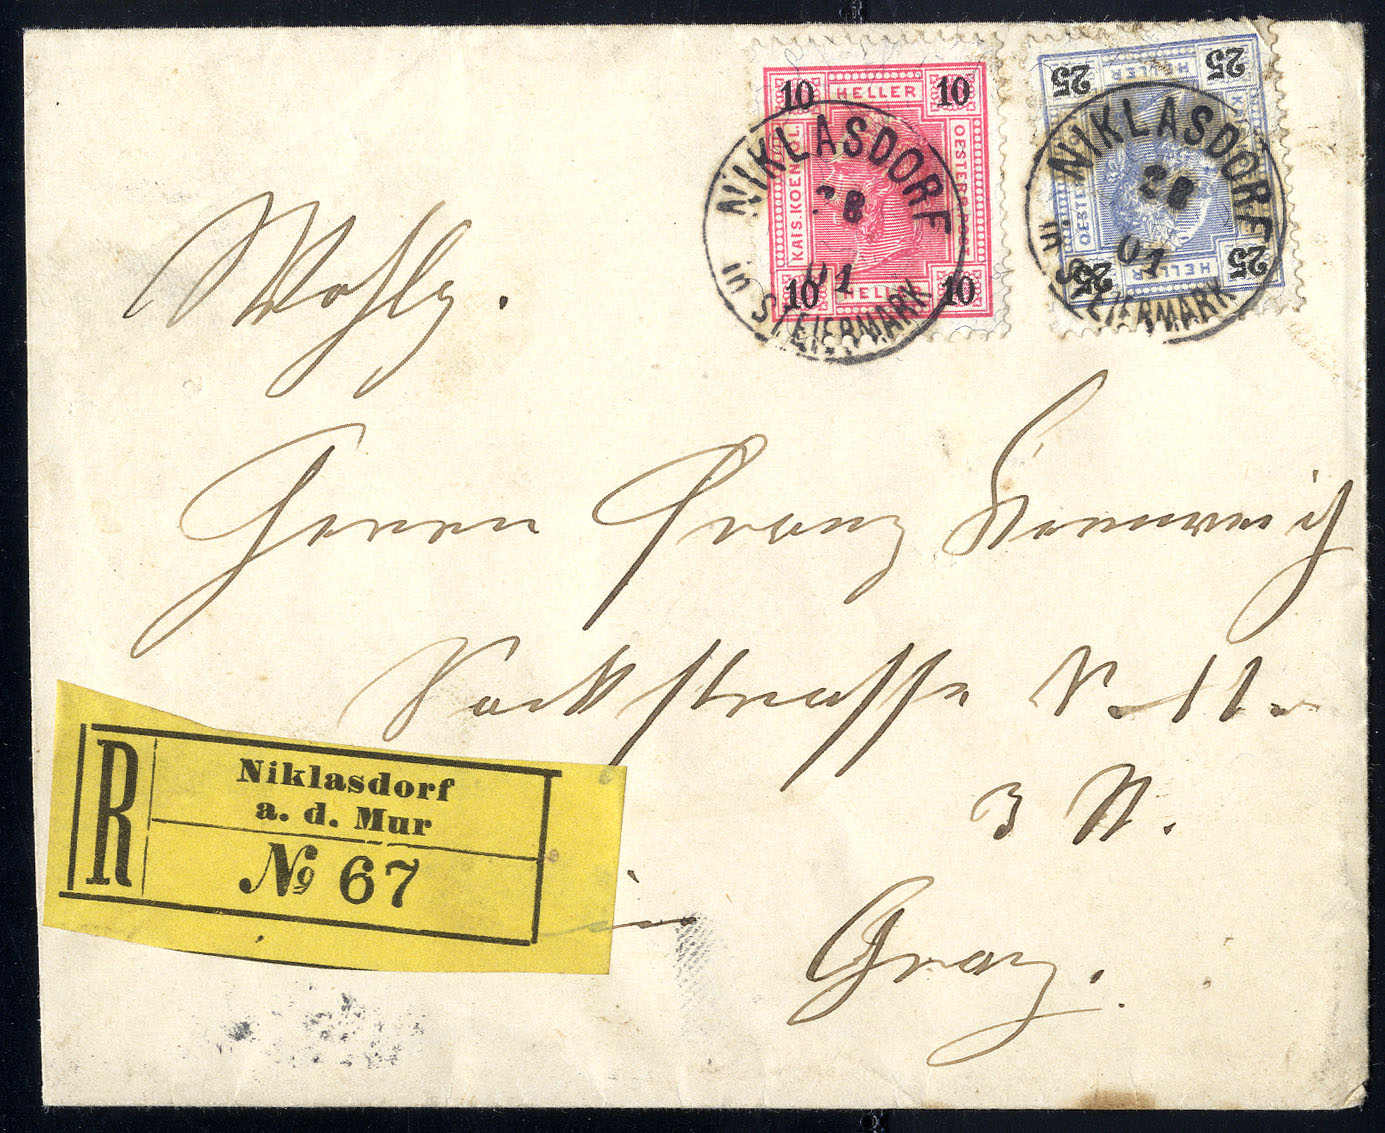 10 HELLER 10
KAIS.KOENIGL.
OESTERR.POST
10 HELLER 10
25 HELLER 25
25 HELLER 25
NIKLASDORF
01
in STEIERMARK
NIKLASDORF
01
in STEIERMARK
Wohlg.
Herrn Franz
Sackstrasse N. 11.
in
Graz.
R
Niklasdorf
a. d. Mur
№ 67